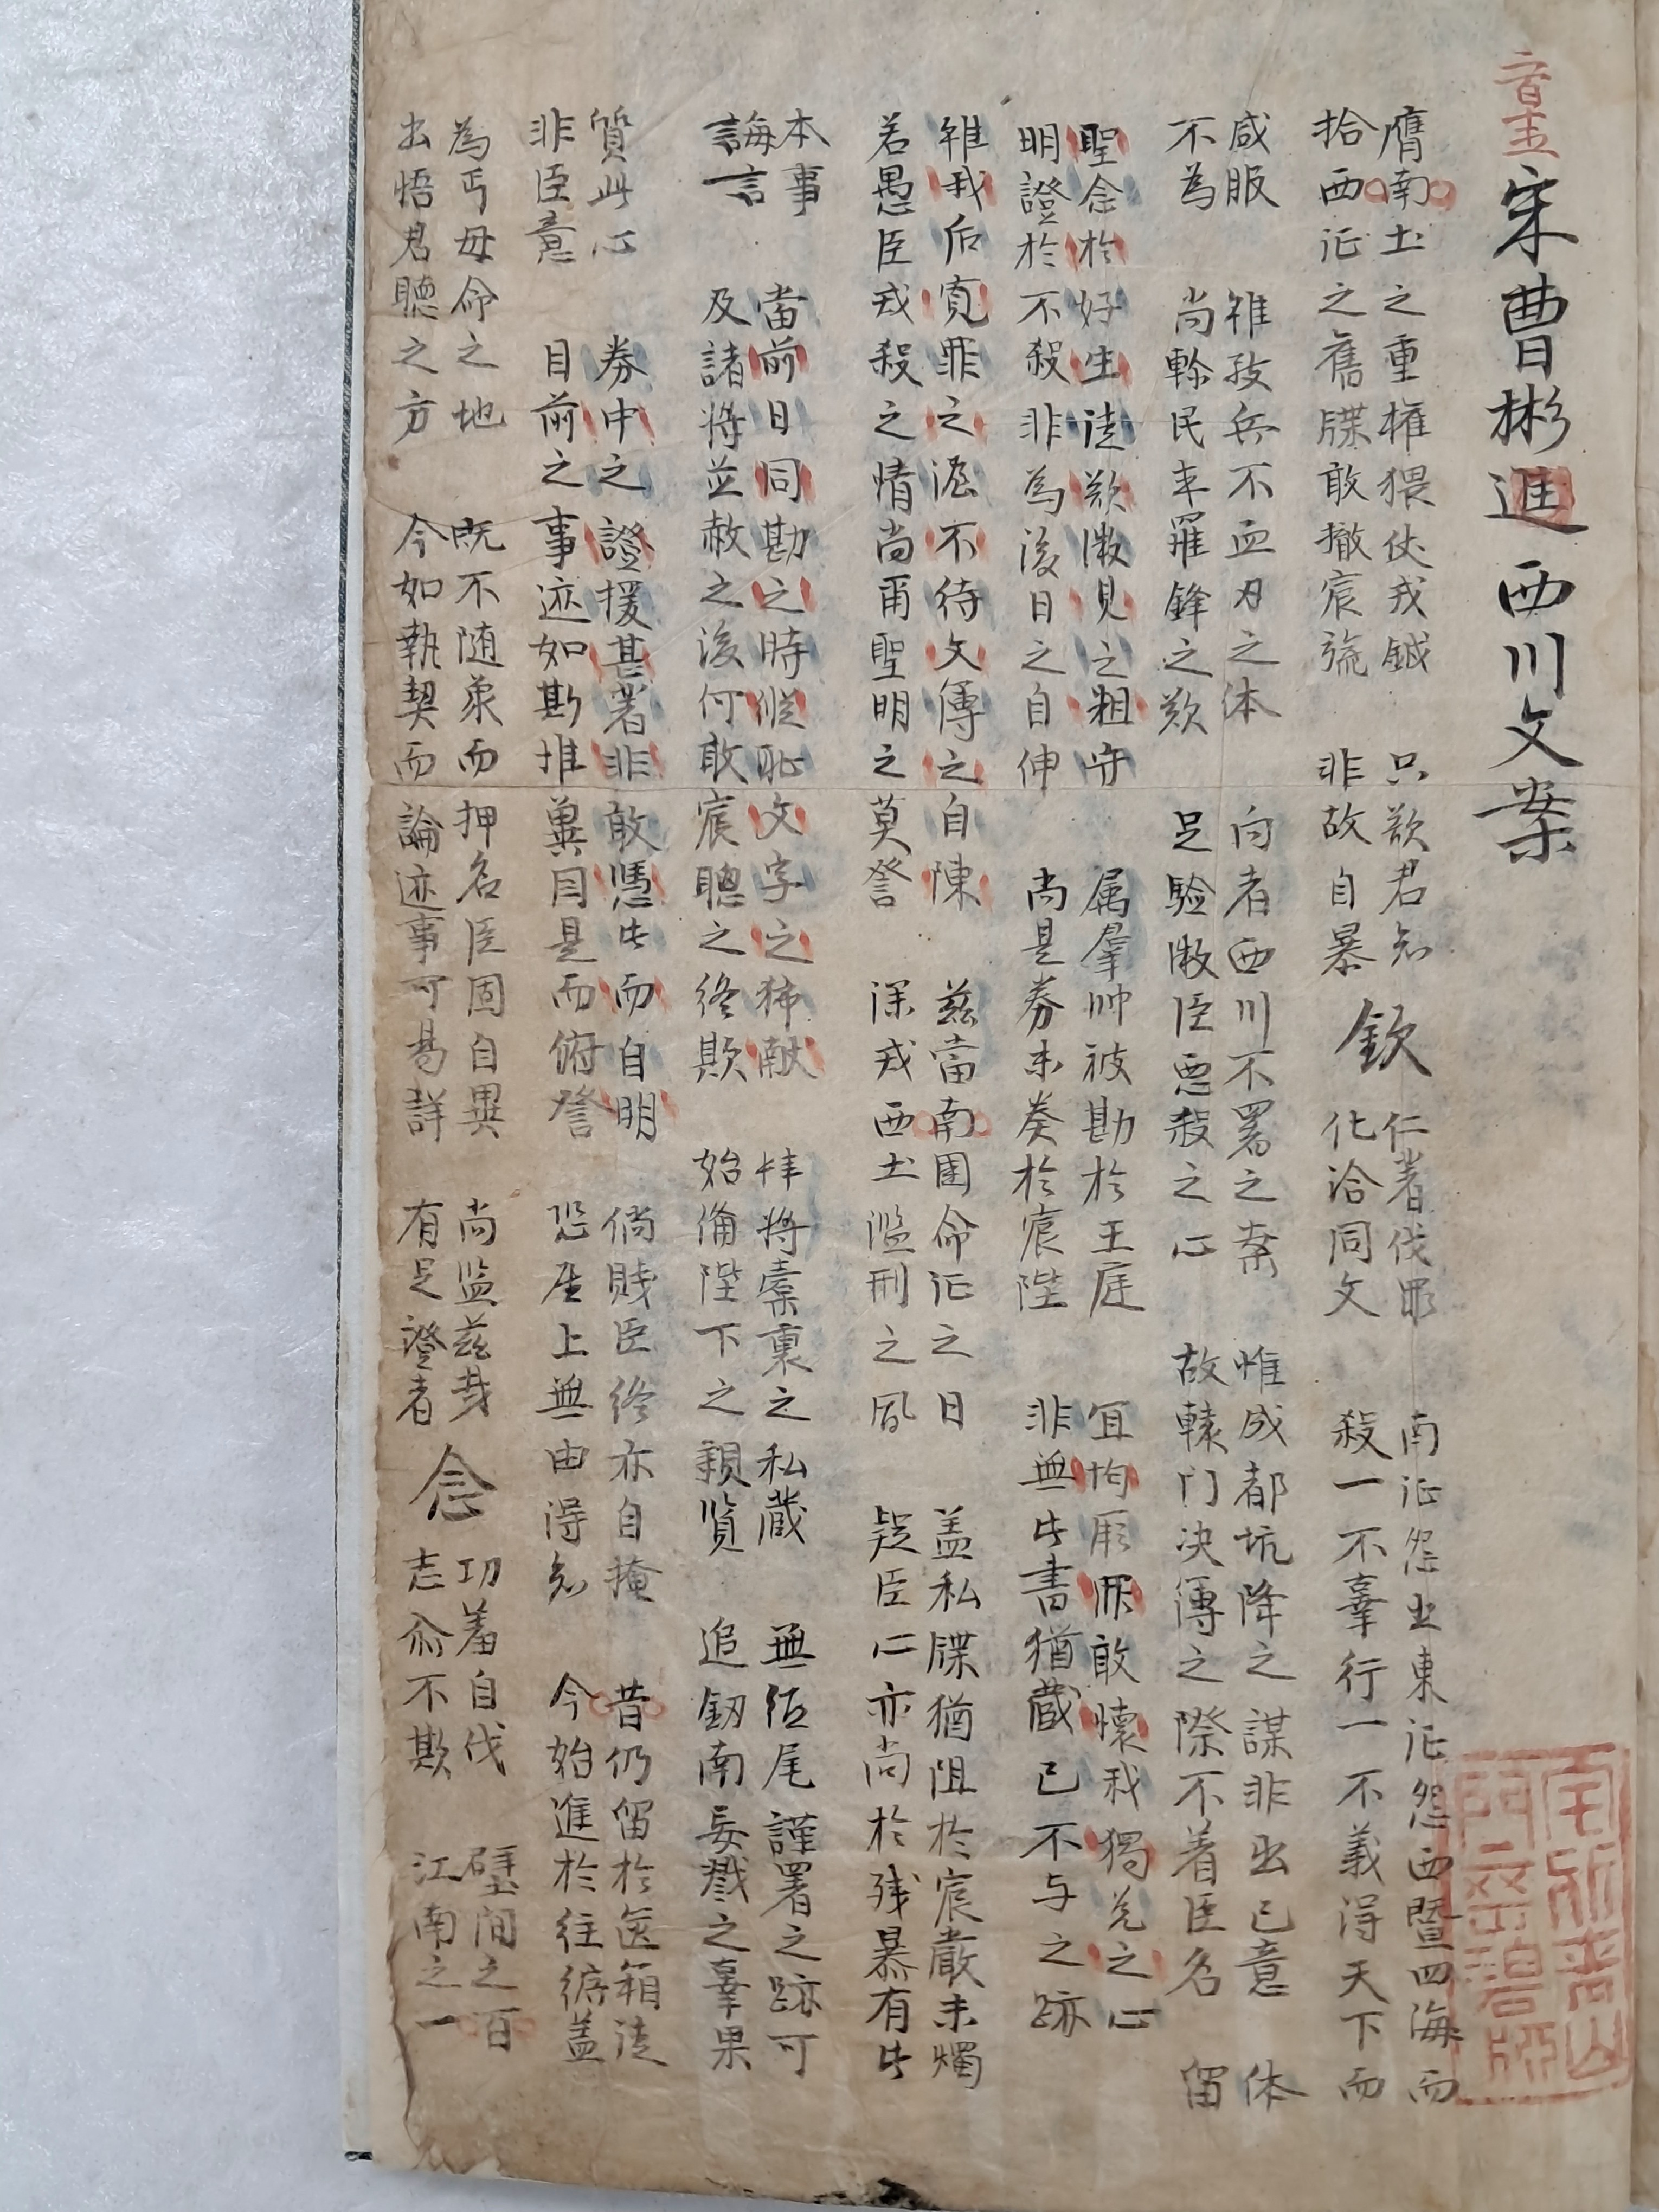 宋曹彬進西川文案
膺南土之重權猥仗戎鉞 只欲君知 欽 仁者伐罪 南征怨北東征怨西曁四海而
拾西征之舊牒敢撤宸旒 非故自暴 化洽同文 殺一不辜行一不義得天下而
咸服 雖孜兵不血刃之体 向者西川不署之案 惟成都坑降之謀非出己意 体
不為 尚軫民未罹鋒之欵 足驗微臣惡殺之心 故轅门决傳之際不着臣名 留
聖念於好生徒欲微見之粗守 属羣帅被勘於王庭 宜均厥罪敢懷我獨免之心
明證於不殺非為後日之自伸 尚是券未奏於宸陛 非無此書猶藏已不与之跡
雖我后寬罪之澤不待文傳之自陳 兹當南國命征之日 盖私牒猶阻於宸嚴未燭
若愚臣戎殺之情尚甭聖明之莫詧 深戎西土濫刑之風 疑臣仁亦尚於残暴有此
本事 當前日同勘之時縱恥文字之獻 肆將橐裏之私藏 無紙尾謹署之跡可
誨言 及諸將並赦之後何敢宸聰之終欺 始備陛下之親覽 追釼南妄戮之辜果
質此心 券中之證援甚著非敢憑此而自明 倘賤臣終亦自掩 昔仍留於篋箱徒
非臣意 目前之事迹如斯惟冀因是而俯詧 恐座上無由得知 今始進於往牘盖
為丐毋命之地 既不随衆而押名臣固自異 尚监兹哉 念 功羞自伐 壁間之百
出悟君聽之方 今如執契而論迹事可易詳 有足證者 志亦不欺 江南之一